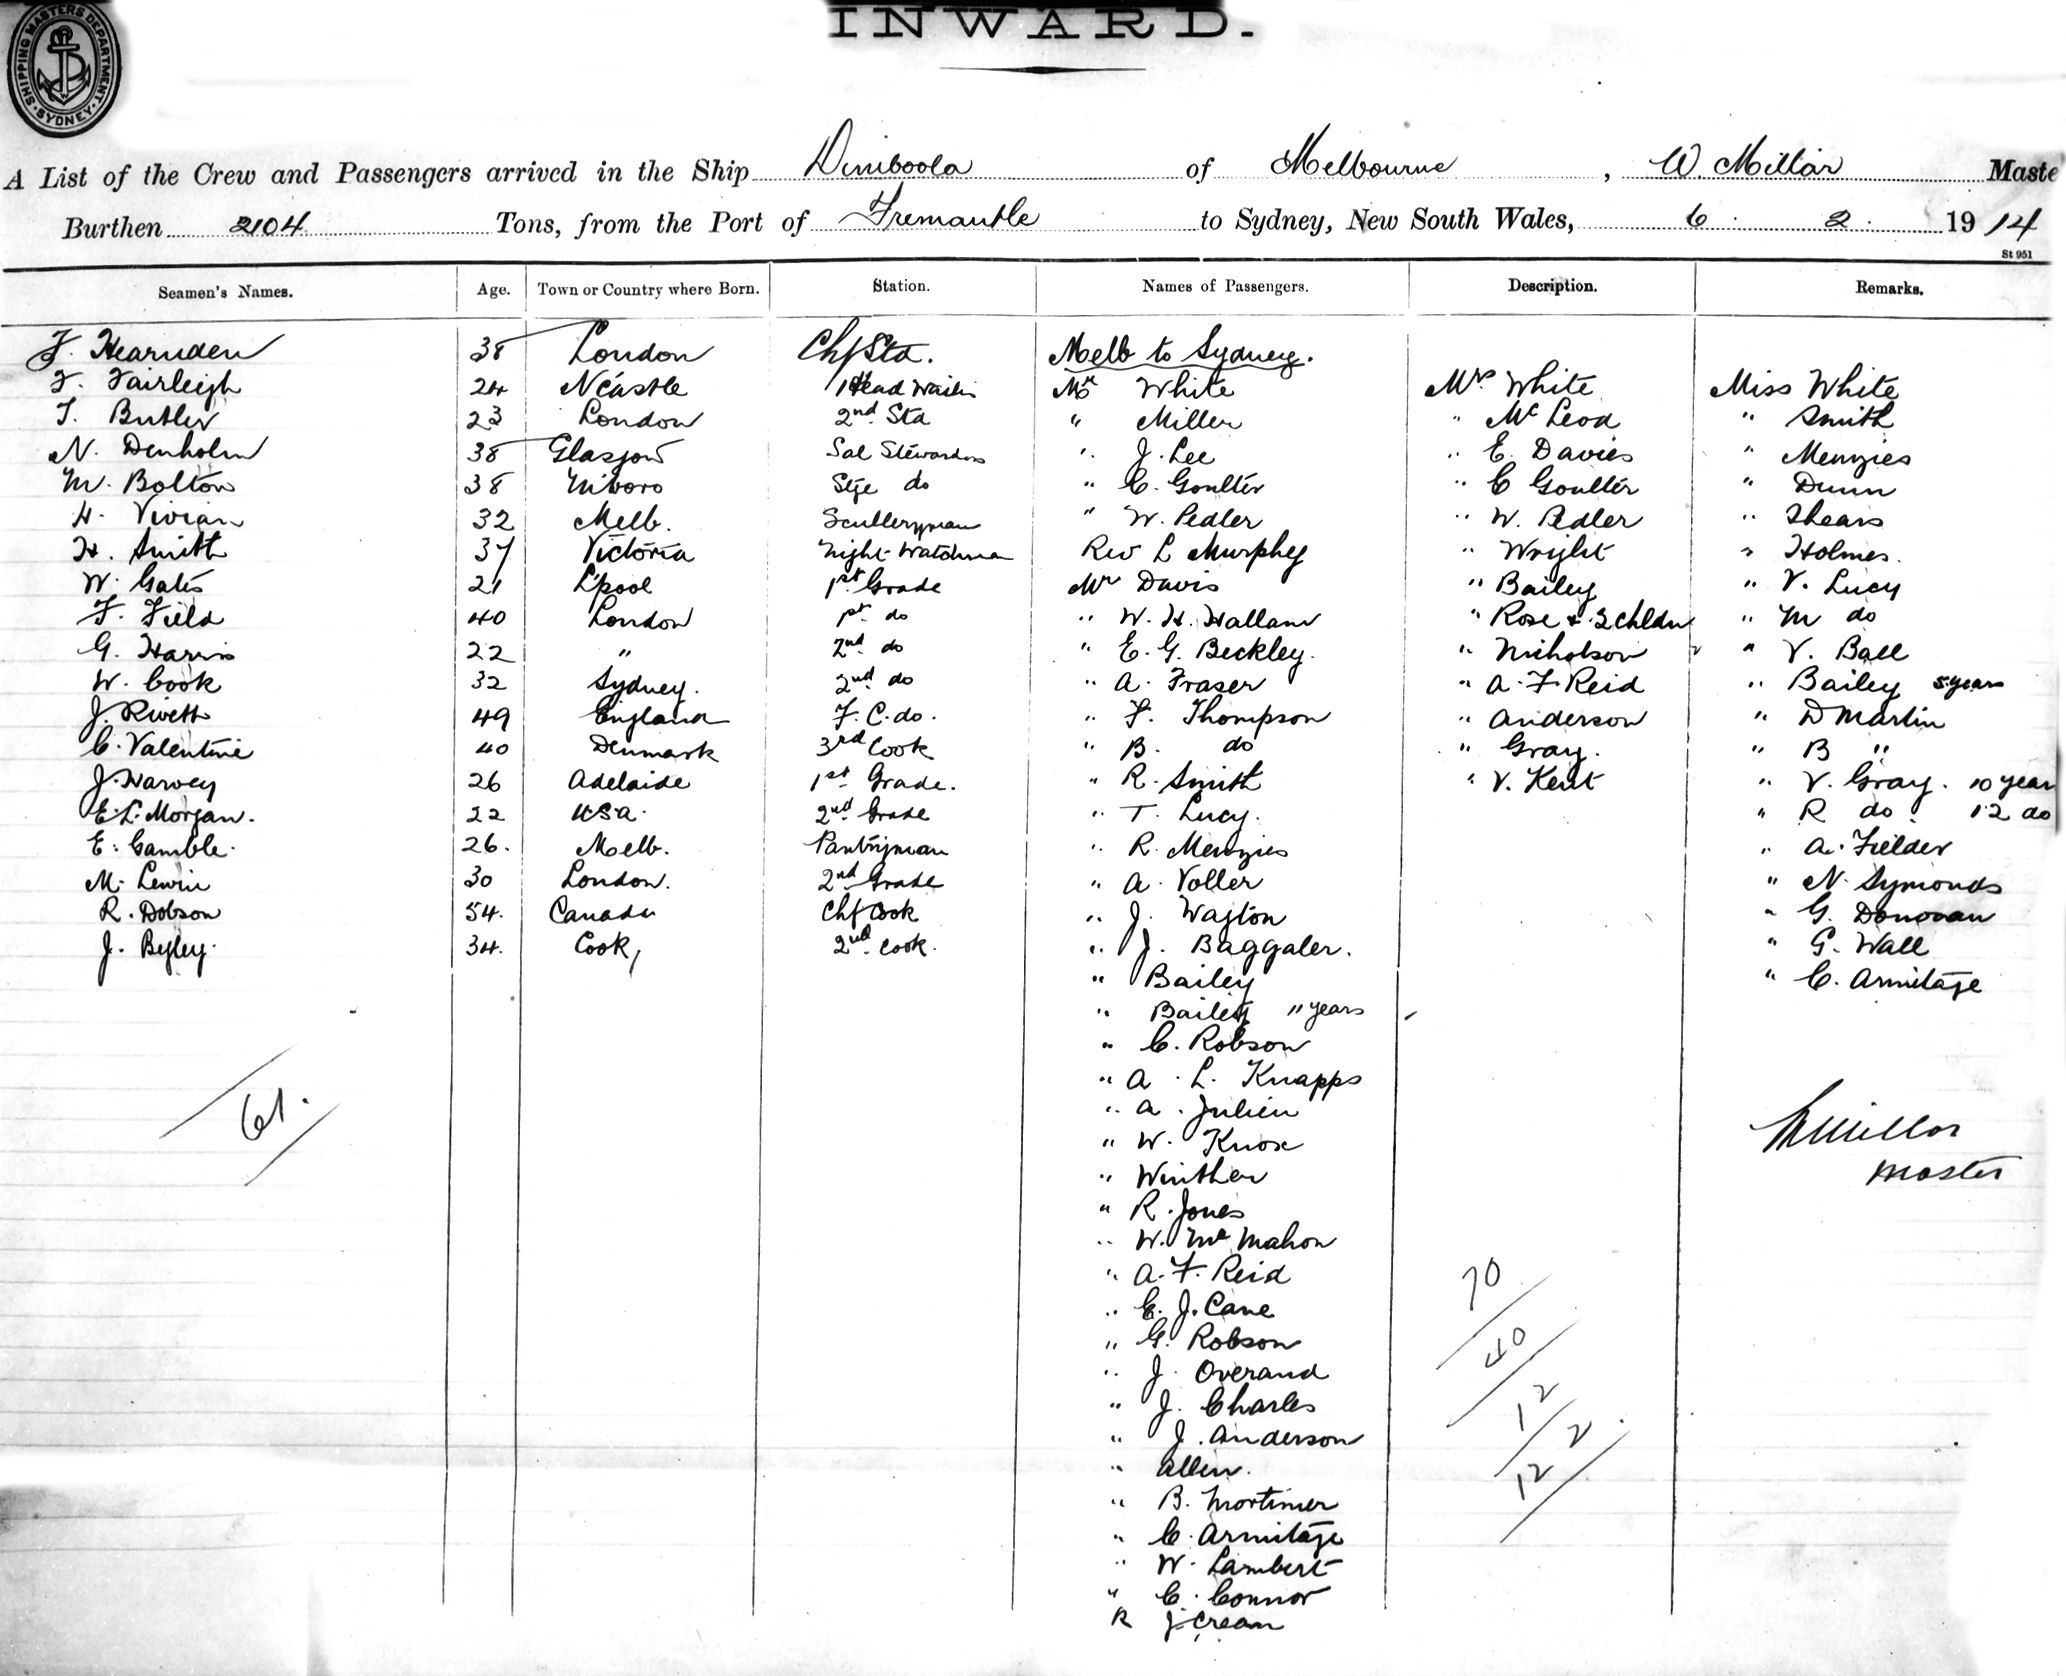 SHIPPING MASTERS DEPARTMENT. SYDNEY.
INWARD.
A List of the Crew and Passengers arrived in the Ship Dimboola of Melbourne, W. Millar Maste
Burthen 2104 Tons, from the Port of Fremantle to Sydney, New South Wales, 6 . 2 . 1914
St 951
Seamen's Names. Age. Town or Country where Born. Station. Names of Passengers. Description. Remarks.
F. Hearnden 38 London Chf Std. Melb to Sydney.
F. Fairleigh 24 N'castle Head Waiter Mr White Mrs White Miss White
T. Butler 23 London 2nd Std " Miller " McLeod " Smith
N. Denholm 38 Glasgow Sal Stewardess " J. Lee " E. Davies " Menzies
M. Bolton 38 M'boro Stge do " C. Goulter " C Goulter " Dunn
H. Vivian 32 Melb. Sculleryman " W. Pedler " W. Pedler " Shears
H. Smith 37 Victoria Night-Watchman Rev L Murphy " Wright " Holmes.
W. Gates 21 L'pool 1st Grade Mr Davis " Bailey " V. Lucy
F. Field 40 London 1st do " W. H. Hallam " Rose & 2 chldn " M do
G. Harris 22 " 2nd do " E. G. Beckley. " Nicholson " V. Ball
W. Cook 32 Sydney. 2nd do " A. Fraser " A. F Reid " Bailey 5 years
J. Rivett 49 England F. C. do. " F. Thompson " Anderson " D Martin
C. Valentine 40 Denmark 3rd Cook " B. do " Gray. " B "
J. Harvey 26 Adelaide 1st Grade. " R. Smith " V. Kent " V. Gray. 10 year
E. L. Morgan. 22 U S A. 2nd Grade " T. Lucy. " R do. 12 do
E. Gamble. 26. Melb. Pantryman " R. Menzies " A. Fielder
M. Lewin 30 London. 2nd Grade " A. Voller " N. Symonds
R. Dobson 54. Canada Chf Cook " J. " G. Donovan
J. Byley. 34. Cook, 2nd Cook. " J. Baggaler. " G. Wall
" Bailey " C. Armitage
" Bailey 11 years
" C. Robson
" A. L. Knapps
" A. Julien
" W. Knox
" Winther
" R. Jones
" W. McMahon
" A. F. Reid
" E. J. Cane
" G. Robson
" J. Overand
" J. Charles
" J. Anderson
" Allen.
" B. Mortimer
" C. Armitage
" W. Lambert
" C. Connor
R J. Crean
61.
W Millar
Master
70
40
12
2
12